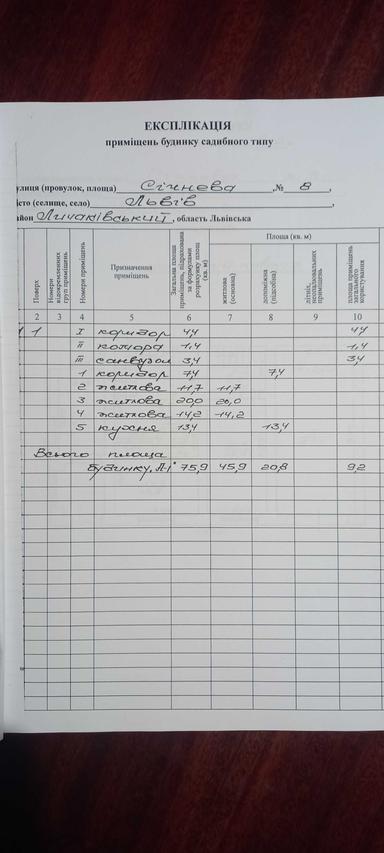 ЕКСПЛІКАЦІЯ
приміщень будинку садибного типу
улиця (провулок, площа) Січнева ,№ 8 ,
істо (селище, село) Львів ,
айон Личаківський , область Львівська
Поверх
Номери відокремлених груп приміщень
Номери приміщень
Призначення приміщень
Загальна площа приміщень, підрахована за формулами розрахунку площ (кв. м)
Площа (кв. м)
житлова (основна)
допоміжна (підсобна)
літніх, неопалювальних приміщень
площа приміщень загального користування
2 3 4 5 6 7 8 9 10
1 I коридор 4,4 4,4
II комора 1,4 1,4
III санвузол 3,4 3,4
1 коридор 7,4 7,4
2 житлова 11,7 11,7
3 житлова 20,0 20,0
4 житлова 14,2 14,2
5 кухня 13,4 13,4
Всього площа
Будинку "А-1" 75,9 45,9 20,8 9,2